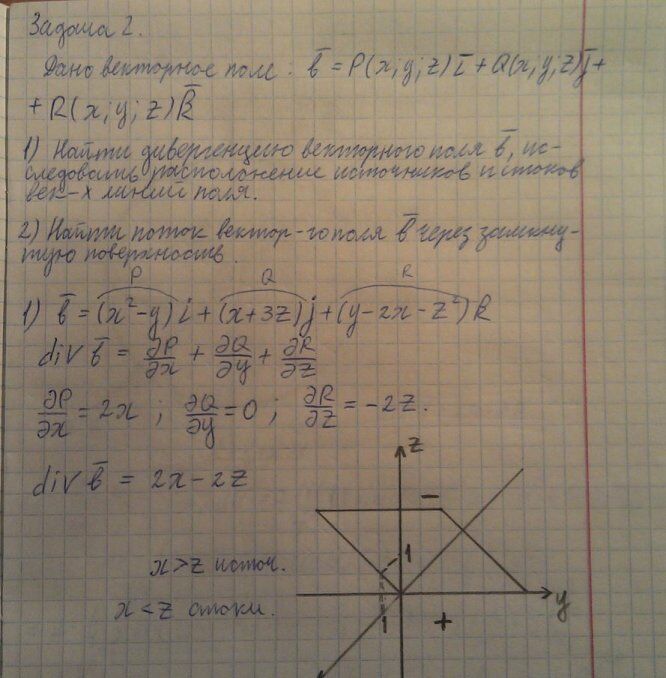 Задача 2.
Дано векторное поле: b̄ = P(x;y;z)ī + Q(x;y;z)j̄ +
+ R(x;y;z)k̄
1) Найти дивергенцию векторного поля b̄, ис-
следовать расположение источников и стоков
век-х линий поля.
2) Найти поток вектор-го поля b̄ через замкну-
тую поверхность.
P Q R
1) b̄ = (x²-y)i + (x+3z)j + (y-2x-z²)k
div b̄ = ∂P/∂x + ∂Q/∂y + ∂R/∂z
∂P/∂x = 2x ; ∂Q/∂y = 0 ; ∂R/∂z = -2z.
div b̄ = 2x - 2z
z
-
x>z источ.
1
x<z стоки.
y
1
+